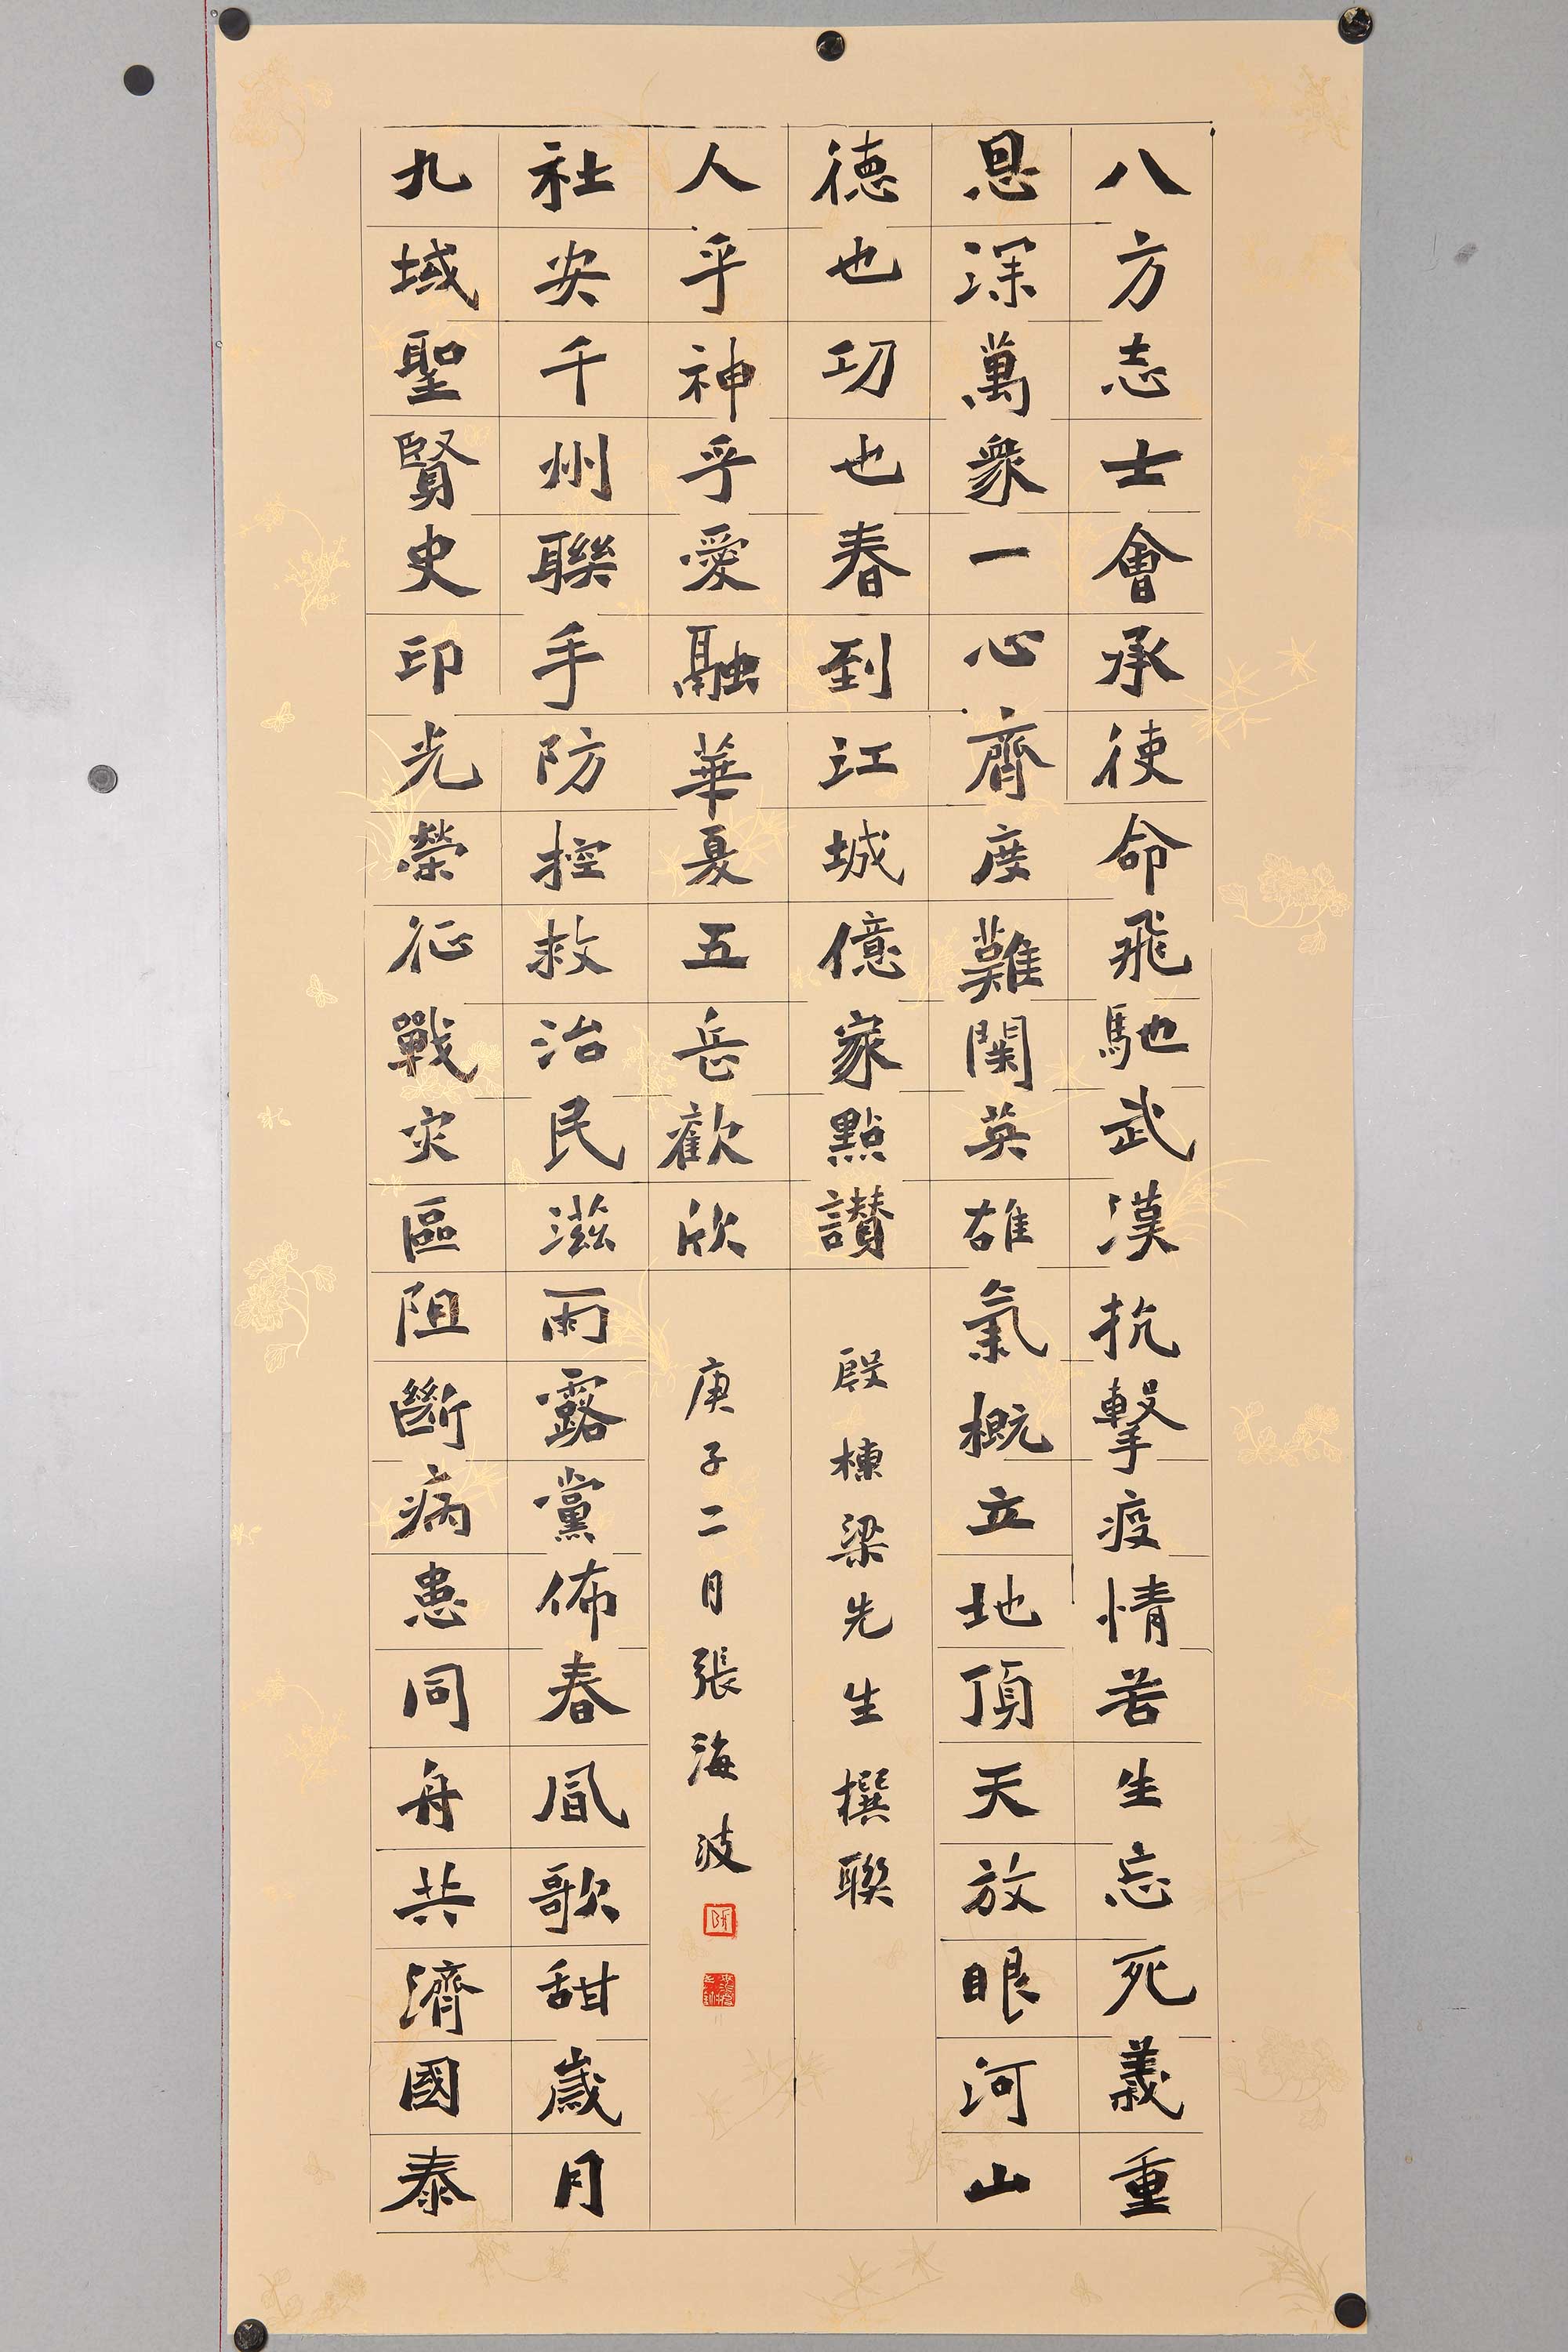 八方志士會承使命飛馳武漢抗擊疫情苦生忘死義重
恩深萬衆一心齊度難關英雄氣概立地頂天放眼河山
德也功也春到江城億家點讚
殷棟梁先生撰聯
九域聖賢史印光榮征戰灾區阻斷病患同舟共濟國泰
社安千州聯手防控救治民滋雨露黨佈春風歌甜歲月
人乎神乎愛融華夏五岳歡欣
庚子二月張海波